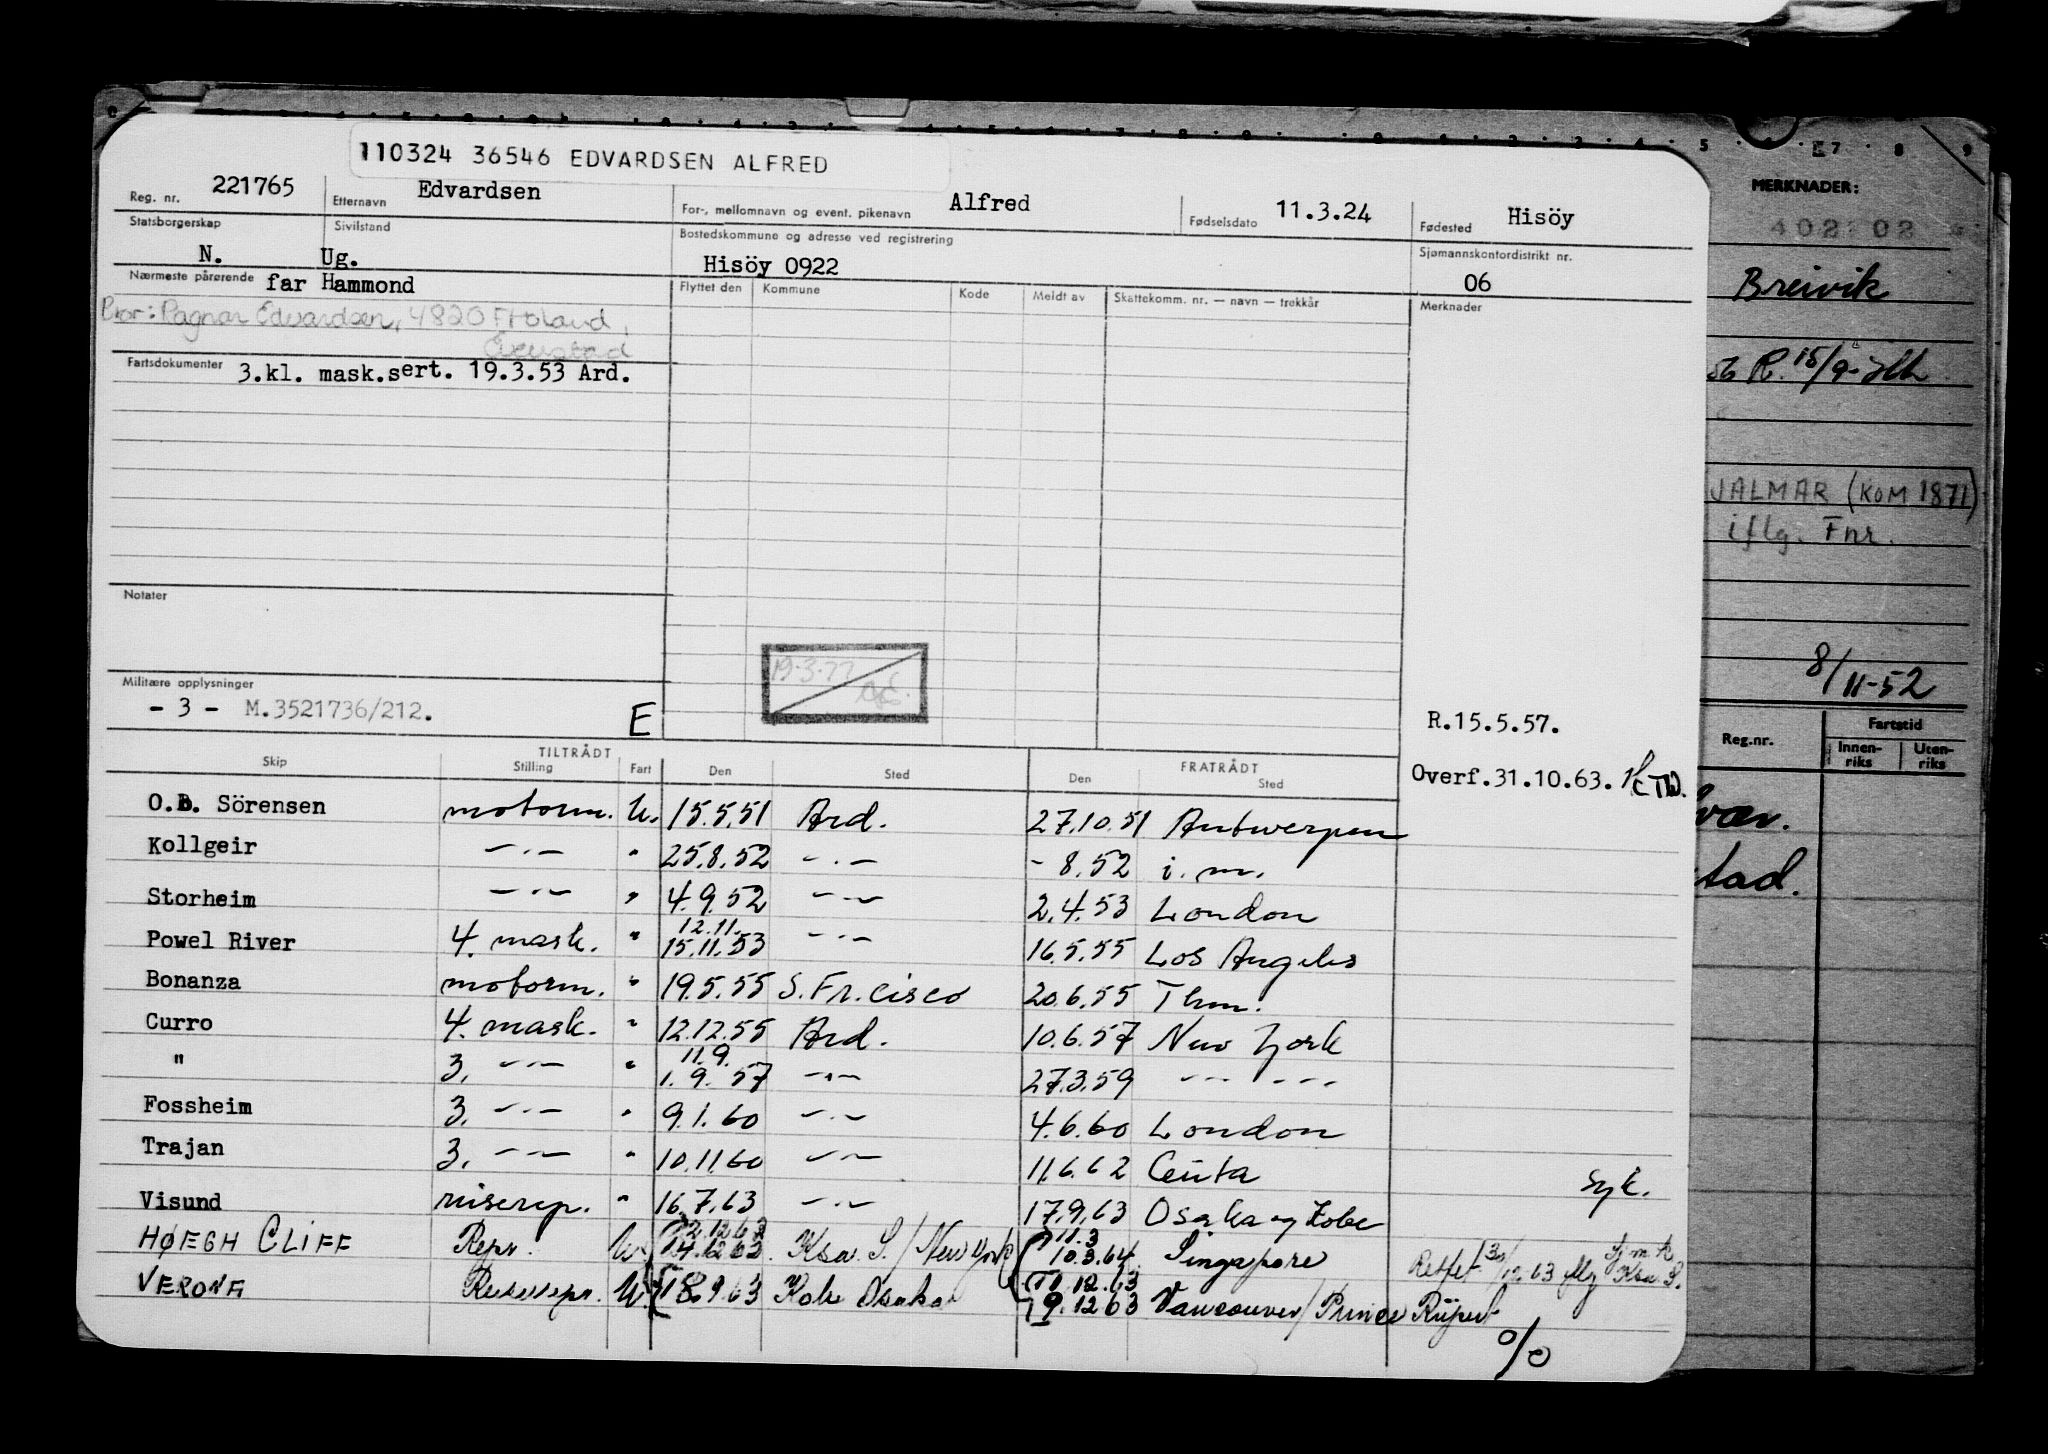 110324 36546 EDVARDSEN ALFRED
Reg. nr. 221765 Etternavn Edvardsen For-, mellomnavn og event. pikenavn Alfred Fødselsdato 11.3.24 Fødested Hisöy
Statsborgerskap N. Sivilstand Ug. Bostedskommune og adresse ved registrering Hisöy 0922 Sjømannskontordistrikt nr. 06
Nærmeste pårørende far Hammond Flyttet den Kommune Kode Meldt av Skattekomm. nr. — navn — trekkår Merknader
Bror: Ragnar Edvardsen, 4820 Froland,
Evenstad
Fartsdokumenter 3.kl. mask.sert. 19.3.53 Ard.
Notater
19.3.77
Militære opplysninger
- 3 - M.3521736/212. E R.15.5.57.
Overf.31.10.63.
TILTRÅDT FRATRÅDT
Skip Stilling Fart Den Sted Den Sted
O.B. Sörensen motorm. U. 15.5.51 Ard. 27.10.51 Antwerpen
Kollgeir —·— " 25.8.52 —·— - 8.52 i.m.
Storheim —·— " 4.9.52 —·— 2.4.53 London
Powel River 4. mask. " 12.11. 15.11.53 —·— 16.5.55 Los Angeles
Bonanza motorm. " 19.5.55 S. Fr.cisco 20.6.55 Thm.
Curro 4. mask. " 12.12.55 Ard. 10.6.57 New York
" 3. —·— " 11.9. 1.9.57 —·— 27.3.59 —·— —·—
Fossheim 3. —·— " 9.1.60 —·— 4.6.60 London
Trajan 3. —·— " 10.11.60 —·— 11.6.62 Ceuta Syk.
Visund reiserep. " 16.7.63 —·— 17.9.63 Osaka og Kobe
HØEGH CLIFF Repr. U 12.12.63 Ksa. S. / New York 11.3 10.3.64 Singapore
VERONA Reiserepr. U 18.9.63 Kobe Osaka 11.12.63 9.12.63 Vancouver / Prince Rupert
%
MERKNADER:
402302
Breivik
R. 15/9-
JALMAR (KOM 1871)
iflg. Fnr.
8/11-52
Reg.nr. Fartstid
Innenriks Utenriks
vær.
tad.